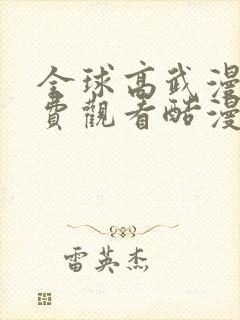 全球高武漫
費觀看酷漫
雷英杰